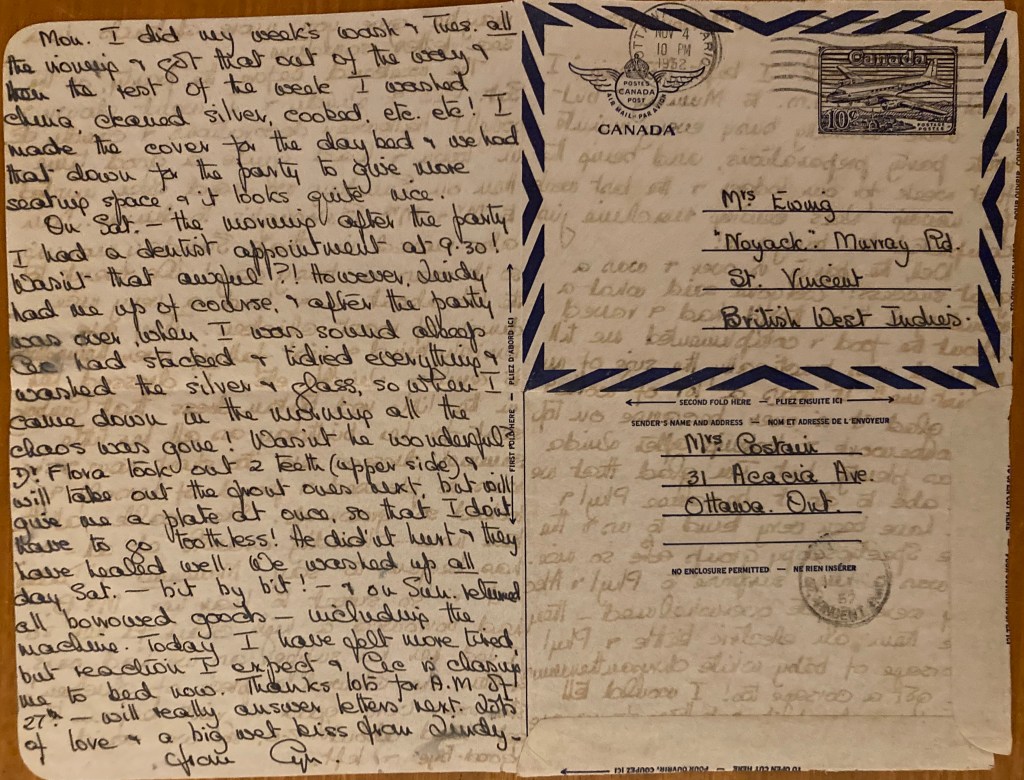 Mon. I did my week's wash & Tues. all
the ironing & got that out of the way &
then the rest of the week I washed
china, cleaned silver, cooked, etc. etc! I
made the cover for the day bed & we had
that down for the party to give more
seating space, & it looks quite nice.
On Sat. – the morning after the party
I had a dentist appointment at 9.30!
Wasn't that awful?! However, Lindy
had me up of course, & after the party
was over, when I was sound asleep
Cec had stacked & tidied everything &
washed the silver & glass, so when I
came down in the morning all the
chaos was gone! Wasn't he wonderful?
Dr. Flora took out 2 teeth (upper side) &
will take out the front ones next, but will
give me a plate at once, so that I don't
have to go toothless! He did'nt hurt & they
have healed well. We washed up all
day Sat. – bit by bit! – & on Sun. returned
all borrowed goods – including the
machine. Today I have felt more tired,
but reaction I expect & Cec is chasing
me to bed now. Thanks lots for A.M of
27th – will really answer letters next. Lots
of love & a big wet kiss from Lindy –
from Cyn.
FIRST FOLD HERE — PLIEZ D'ABORD ICI
NOV 4
10 PM
1952
POSTES
CANADA
POST
AIR MAIL · PAR AVION
CANADA
Canada
10¢
POSTES POSTAGE
Mrs Ewing
"Noyack" Murray Rd.
St. Vincent
British West Indies.
SECOND FOLD HERE — PLIEZ ENSUITE ICI
SENDER'S NAME AND ADDRESS — NOM ET ADRESSE DE L'ENVOYEUR
Mrs Costain
31 Acacia Ave.
Ottawa. Ont.
NO ENCLOSURE PERMITTED — NE RIEN INSÉRER
52
ST. VINCENT
TO OPEN CUT HERE — POUR OUVRIR, COUPEZ ICI